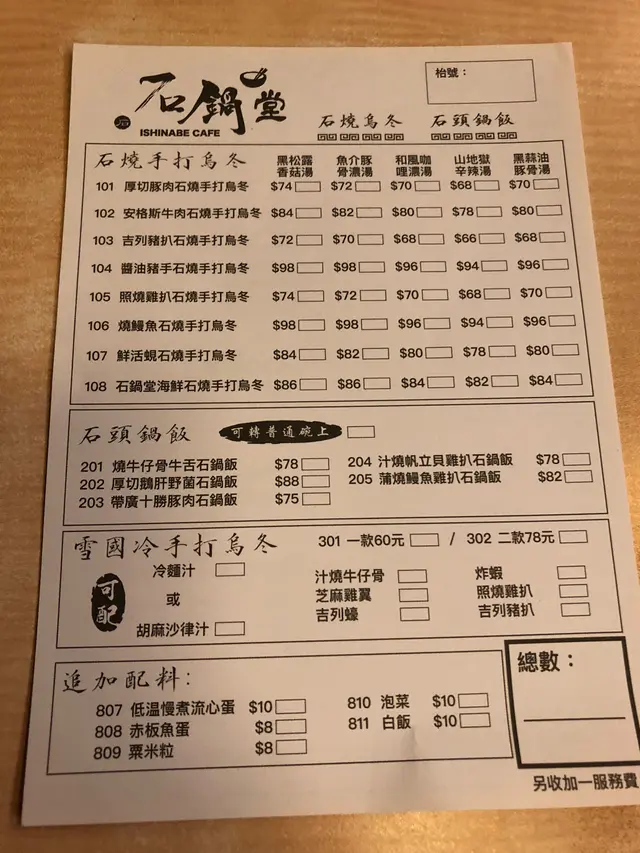 石鍋堂
ISHINABE CAFE
枱號：
石燒烏冬 石頭鍋飯
石燒手打烏冬 黑松露香菇湯 魚介豚骨濃湯 和風咖哩濃湯 山地獄辛辣湯 黑蒜油豚骨湯
101 厚切豚肉石燒手打烏冬 $74 $72 $70 $68 $70
102 安格斯牛肉石燒手打烏冬 $84 $82 $80 $78 $80
103 吉列豬扒石燒手打烏冬 $72 $70 $68 $66 $68
104 醬油豬手石燒手打烏冬 $98 $98 $96 $94 $96
105 照燒雞扒石燒手打烏冬 $74 $72 $70 $68 $70
106 燒鰻魚石燒手打烏冬 $98 $98 $96 $94 $96
107 鮮活蜆石燒手打烏冬 $84 $82 $80 $78 $80
108 石鍋堂海鮮石燒手打烏冬 $86 $86 $84 $82 $84
石頭鍋飯 可轉普通碗上
201 燒牛仔骨牛舌石鍋飯 $78 204 汁燒帆立貝雞扒石鍋飯 $78
202 厚切鵝肝野菌石鍋飯 $88 205 蒲燒鰻魚雞扒石鍋飯 $82
203 帶廣十勝豚肉石鍋飯 $75
雪國冷手打烏冬 301 一款60元 / 302 二款78元
可配
冷麵汁 汁燒牛仔骨 炸蝦
或 芝麻雞翼 照燒雞扒
胡麻沙律汁 吉列蠔 吉列豬扒
追加配料：
807 低溫慢煮流心蛋 $10 810 泡菜 $10
808 赤板魚蛋 $8 811 白飯 $10
809 粟米粒 $8
總數：
另收加一服務費